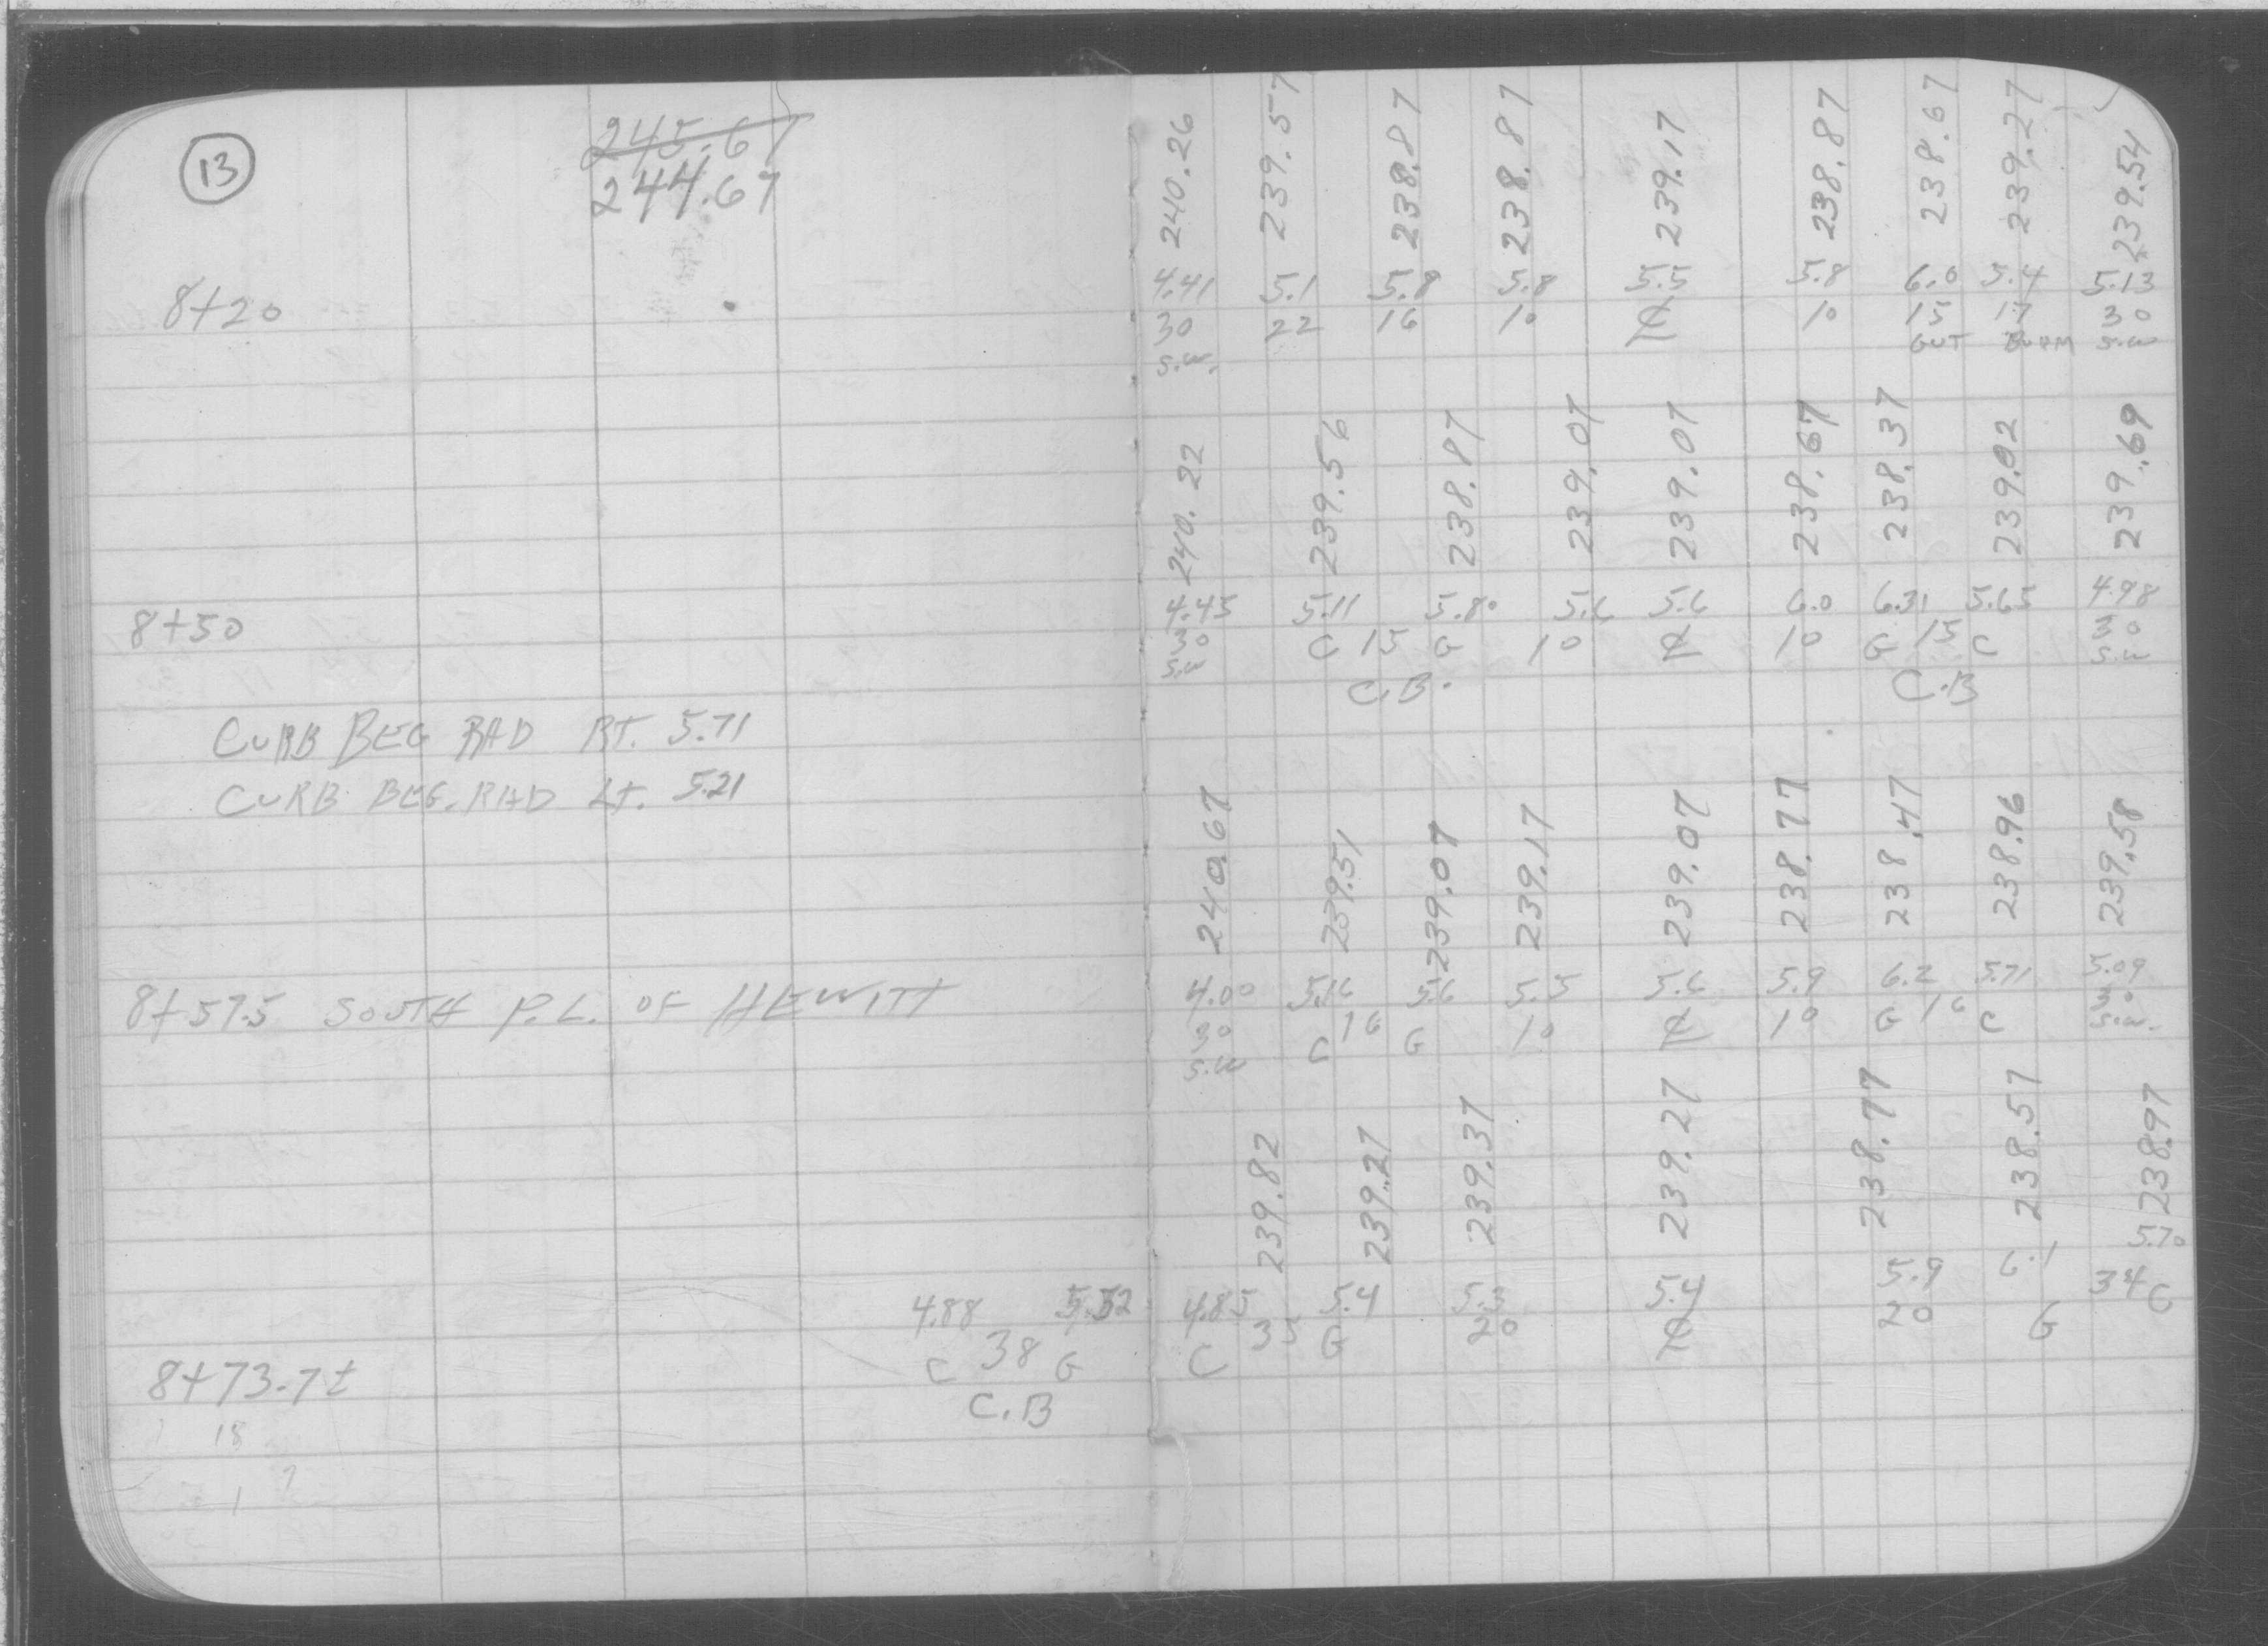 13
245.67
244.67
240.26 239.57 238.87 238.87 239.17 238.87 238.67 239.27 239.54
4.41 5.1 5.8 5.8 5.5 5.8 6.0 5.4 5.13
8+20 30 22 16 10 ℄ 10 15 17 30
S.W. GUT BURM S.W
240.22 239.56 238.87 239.07 239.07 238.67 238.37 239.02 239.69
4.45 5.11 5.80 5.6 5.6 6.0 6.31 5.65 4.98
8+50 30 C 15 G 10 ℄ 10 G 15 C 30
S.W C.B. C.B S.W
CURB BEG RAD RT. 5.71
CURB BEG. RAD LT. 5.21
240.67 239.51 239.07 239.17 239.07 238.77 238.47 238.96 239.58
4.00 5.16 5.6 5.5 5.6 5.9 6.2 5.71 5.09
8+57.5 SOUTH P.L. OF HEWITT 30 C 16 G 10 ℄ 10 G 16 C 30
S.W S.W.
239.82 239.27 239.37 239.27 238.77 238.57 238.97
4.88 5.52 4.85 5.4 5.3 5.4 5.9 6.1 5.70
C 38 G C 35 G 20 ℄ 20 G 34 C
8+73.7±
C.B
18